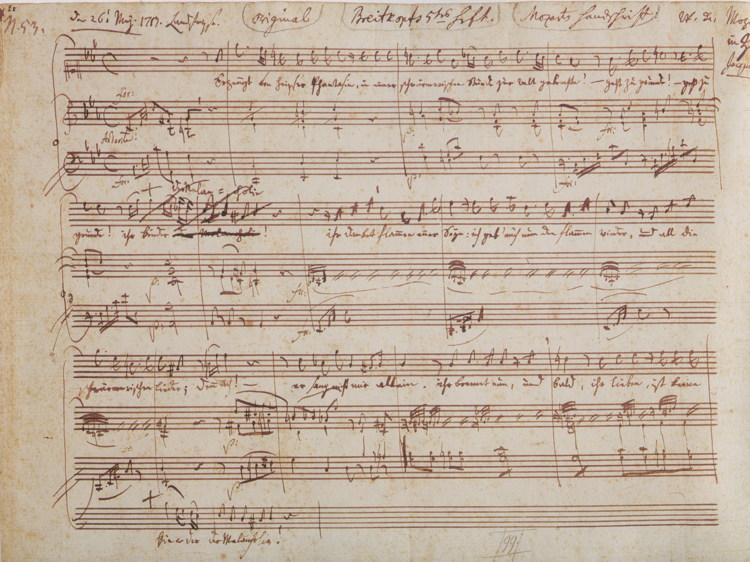 N. 53. Den 26t May 1787. Landstrasse. (Original) (Breitkopfs 5tes Heft.) (Mozarts Handschrift.)
Erzeugt von heißer Phantasie, in einer schwärmerischen Stunde zur Welt gebrachte! – geht zu Grunde! – geht zu
for:
for:
Grunde! ihr Kinder der Melancholie!
ihr danket Flammen euer Seyn: ich geb' euch nun den Flammen wieder, und all die
p:
for:
schwärmerischen Lieder; denn ach! –
er sang nicht mir allein. ihr brennet nun, und bald, ihr Lieben, ist keine
p:
Kinder der Melancholie!